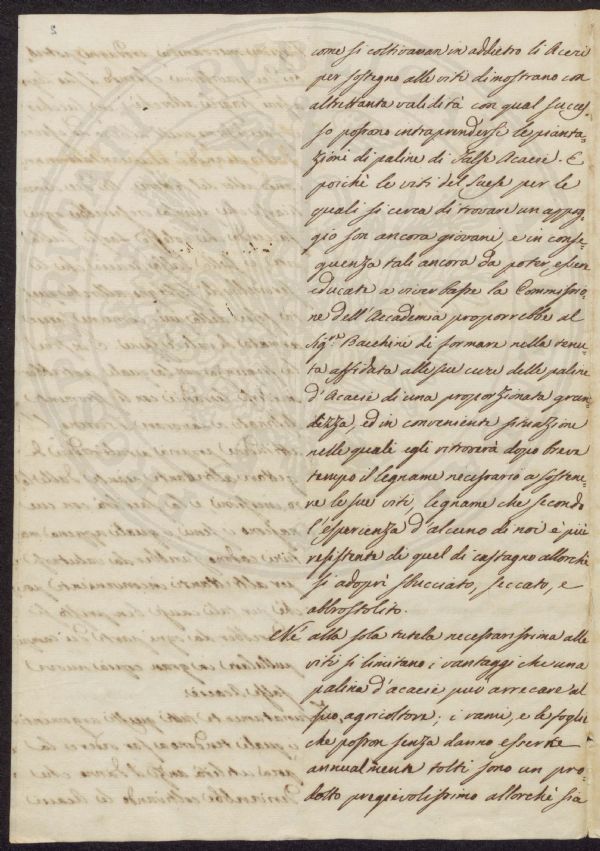 come si coltivavan in addietro di Aceri
per sostegno alle viti dimostrano con
altrettanta validità con qual succes-
so possono intraprenderse le pianta-
zioni di paline di False Acacie. E
poichè le viti del Suese per le
quali si cerca di trovare un appog-
gio son ancora giovani, e in conse-
guenza tali ancora da poter, essere
educate a viver basse la Commissio-
ne dell'Accademia proporrebbe al
Sigre. Bacchini di formare nella tenu-
ta affidata alle sue cure delle paline
d'Acacie di una proporzionata gran-
dezza, ed in conveniente situazione
nelle quali egli ritroverà dopo breve
tempo il legname necessario a sostene-
re le sue viti, legname che secondo
l'esperienza d'alcuno di noi è più
resistente di quel di castagno allorchè
si adopri sbucciato, seccato, e
abbrostolito.
Nè alla sola tutela necessarissima alle
viti si limitano i vantaggi che una
palina d'acacie può arrecare al
suo, agricoltore; i rami, e le foglie
che posson senza danno esserne
annualmente tolti sono un pro-
dotto pregievolissimo allorchè sia